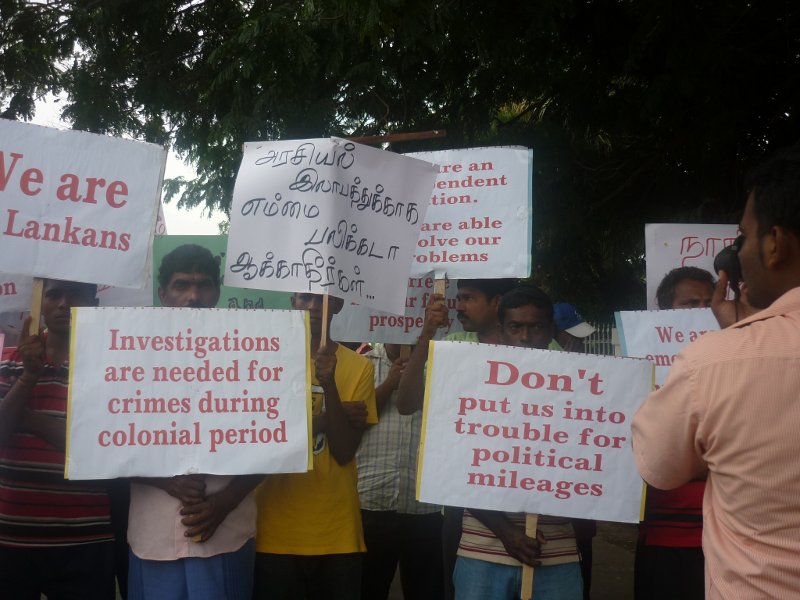 We are
Lankans
அரசியல்
இலாபத்துக்காக
எம்மை
பலிக்கடா
ஆக்காதீர்கள்...
are an
tion.
are able
problems
Investigations
are needed for
crimes during
colonial period
Don't
put us into
trouble for
political
mileages
We are